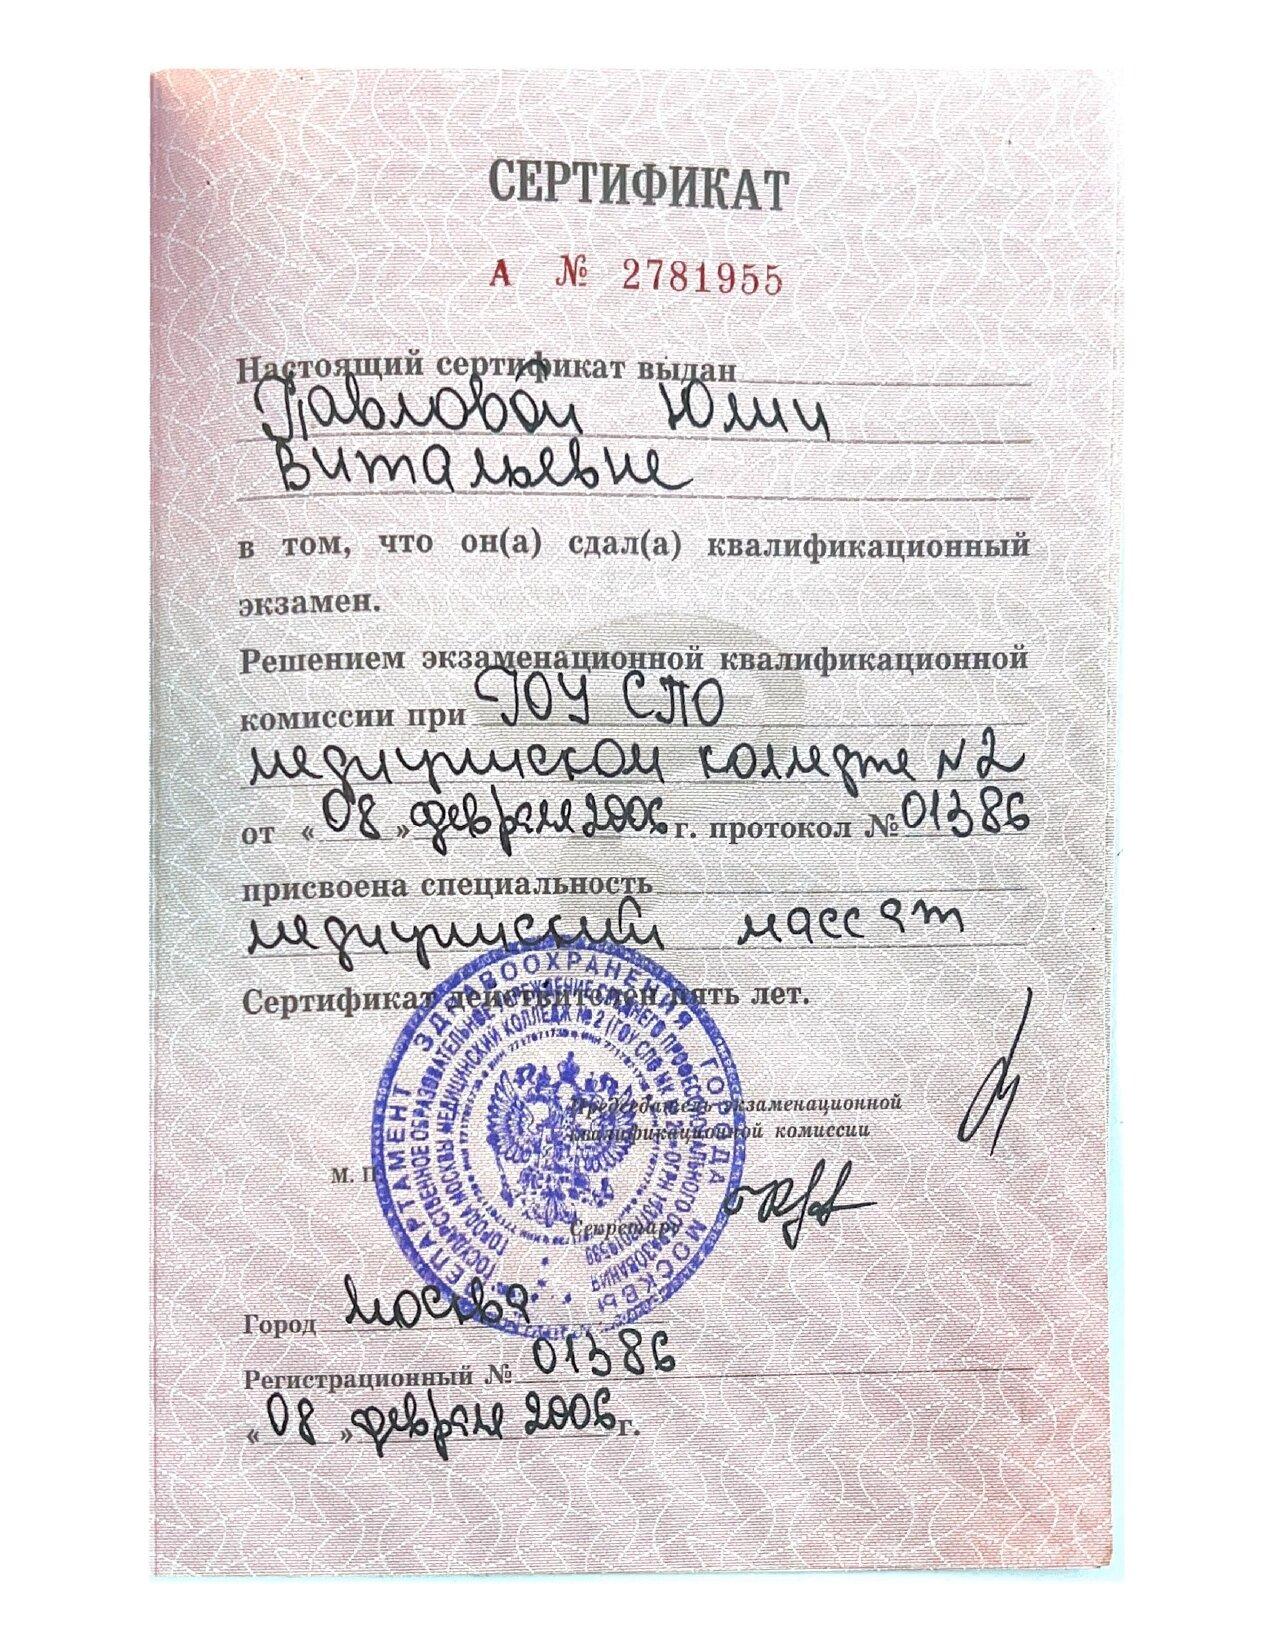 СЕРТИФИКАТ
А № 2781955
Настоящий сертификат выдан
Павловой Юлии
Витальевне
в том, что он(а) сдал(а) квалификационный
экзамен.
Решением экзаменационной квалификационной
комиссии при ГОУ СПО
медицинском колледже №2
от «08» февраля 2006 г. протокол № 01386
присвоена специальность
медицинский массаж
Сертификат действителен пять лет.
Председатель экзаменационной
квалификационной комиссии
М. П.
Секретарь
ДЕПАРТАМЕНТ ЗДРАВООХРАНЕНИЯ ГОРОДА МОСКВЫ
ГОСУДАРСТВЕННОЕ ОБРАЗОВАТЕЛЬНОЕ УЧРЕЖДЕНИЕ СРЕДНЕГО ПРОФЕССИОНАЛЬНОГО ОБРАЗОВАНИЯ
ГОРОДА МОСКВЫ МЕДИЦИНСКИЙ КОЛЛЕДЖ № 2 (ГОУ СПО МК
Город Москва
Регистрационный № 01386
«08» февраля 2006 г.